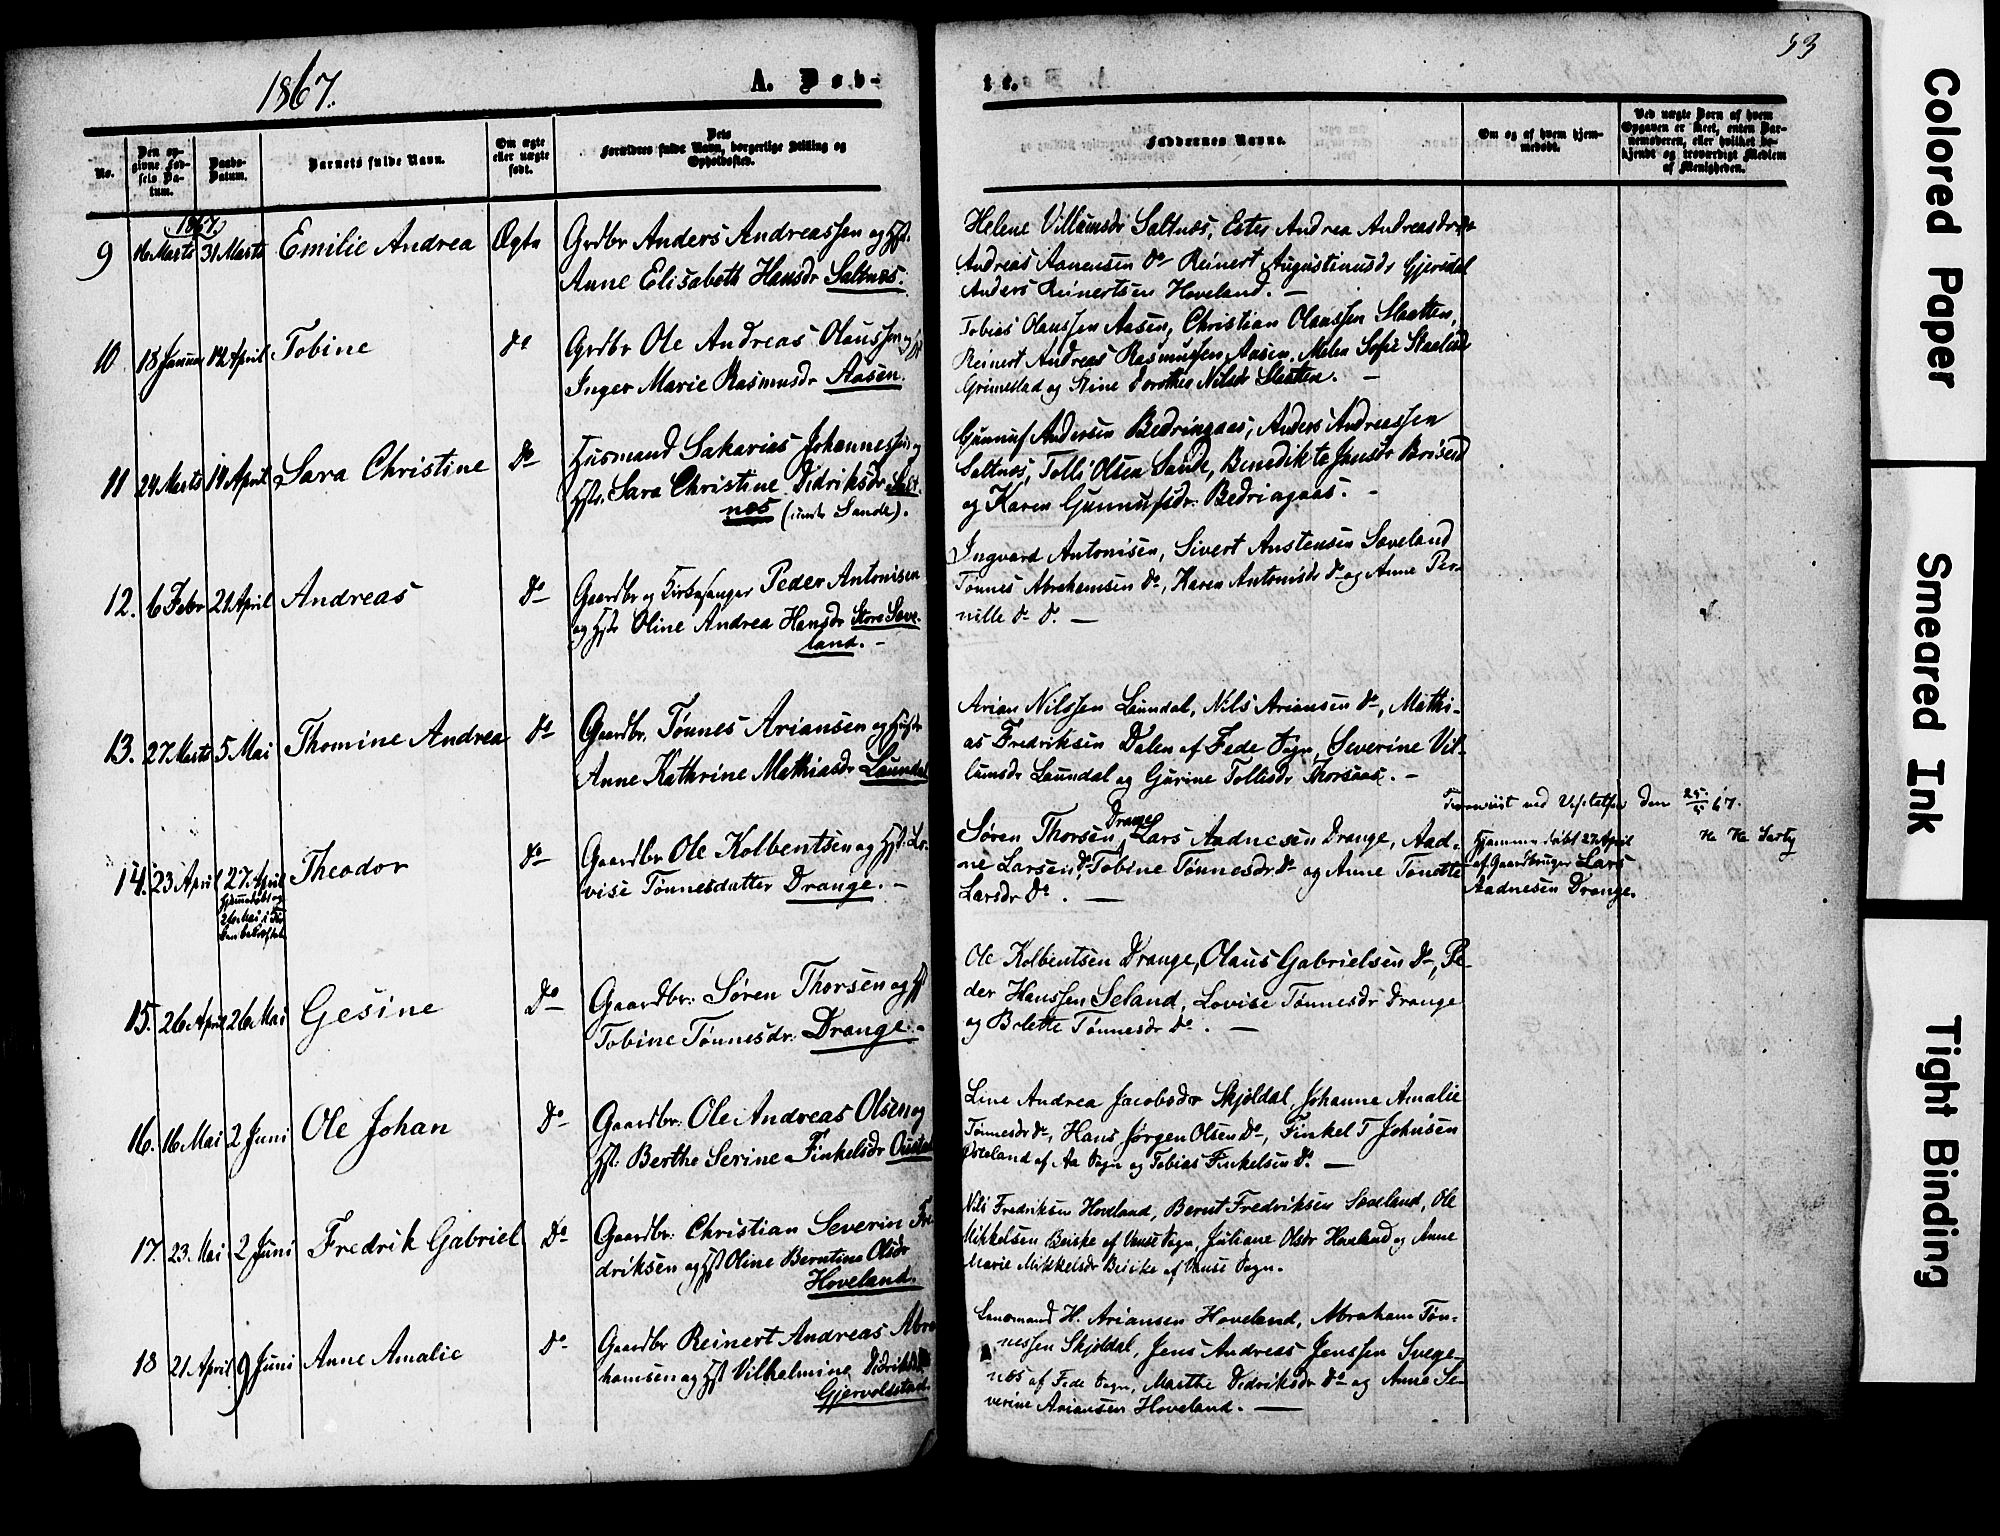 1867.
A. Døb-
te.
53
No.
Den op-
givne Fød-
sels Da-
tum.
Daabs-
Datum.
Barnets fulde Navn.
Om ægte
eller uægte
født.
Dets
Forældres fulde Navn, borgerlige Stilling og
Opholdssted.
Faddernes Navne.
Om og af hvem hjem-
medøbt.
Ved uægte Børn af hvem
Opgaven er skeet, enten Bar-
nemoderen, eller hvilket be-
kjendt og troværdigt Medlem
af Menigheden.
1867.
9 16 Marts 31 Marts Emilie Andrea Ægte Grdbr Anders Andreassen og Hst.
Anne Elisabeth Hansdr Saltnæs.
Helene Villumsdr Saltnæs, Ester Andrea Andreasdr
Andreas Aanensen do Reinert Augustinusdr Gjersdal
Anders Reinertsen Hoveland. —
10 18 Januar 12 April Tobine do Grdbr Ole Andreas Olaussen og
Inger Marie Rasmusdr Aasen.
Tobias Olaussen Aasen, Christian Olaussen Slaatten,
Reinert Andreas Rasmussen Aasen, Malen Sofie
Grimestad og Stine Dorothea Nilsdr Slaatten. —
11 24 Marts 14 April Sara Christine Do Husmand Sakarias Johannessen og
Hst. Sara Christine Didriksdr Salt-
næs (under Sande).
Gunnuf Andersen Bedringaas, Anders Andreassen
Saltnæs, Tollis Olsen Sande, Benedikte Jansdr
og Karen Gunnufsdr. Bedringaas. —
12. 6 Febr 21 April Andreas Do Gaardbr og Kirkesanger Peder Antonisen
og Hstr Oline Andrea Hansdr Store Save-
land. —
Ingvard Antonisen, Sivert Austensen Saveland
Tønnes Abrahamsen do, Karen Antonisdr do og Anne Per-
nille do do. —
13. 27 Marts 5 Mai Thomine Andrea do Gaardbr. Tønnes Ariansen og Hustr
Anne Kathrine Mathiasdr Laundal
Arian Nilssen Laundal, Nils Ariansen do, Mathi-
as Fredriksen Dalen af Fede Sogn, Severine Vil-
lumsdr Laundal og Gurine Tollisdr Thorsaas. —
ved den 25/5 67.
14. 23 April 27 April Theodor do Gaardbr Ole Kolbentsen og Hst. Lo-
hjemmedøbt og
26 Mai i Kir-
ken bekræftet
vise Tønnesdatter Drange. —
Drange
Søren Thorsen, Lars Aadnesen Drange, Aad-
ne Larsen do Tobine Tønnesdr do og Anne Tonette
Larsdr do. —
Hjemmedøbt 27 April
af Gaardbruger Lars
Aadnesen Drange.
15. 26 April 26 Mai Gesine Do Gaardbr: Søren Thorsen og Hst
Tobine Tønnesdr: Drange. —
Ole Kolbentsen Drange, Olaus Gabrielsen do, Pe-
der Hanssen Seland, Lovise Tønnesdr Drange
og Bolette Tønnesdr do. —
16. 16 Mai 2 Juni Ole Johan Do Gaardbr: Ole Andreas Olsen og
Hst: Berthe Serine Finkelsdr
Line Andrea Jacobsdr Skjoldal, Johanne Amalie
Tønnesdr do, Hans Jørgen Olsen do, Finkel T Johnsen
af Aa Sogn og Tobias Finkelsen do. —
17. 23. Mai 2 Juni Fredrik Gabriel Do Gaardbr: Christian Severin Fre-
driksen og Hst Oline Berntine Olsdr
Hoveland.
Nils Fredriksen Hoveland, Bernt Fredriksen Saveland, Ole
Mikkelsen Briske af Vanse Sogn, Juliane Olsdr Hoveland og Anne
Marie Mikkelsdr Briske af Vanse Sogn.
18 21 April 9 Juni Anne Amalie Do Gaardbr Reinert Andreas Abra-
hamsen og Hst Vilhelmine Didriksdr
Gjervoldstad.
Lensmand H. Ariansen Hoveland, Abraham Tøn-
nessen Skjoldal, Jens Andreas Jenssen Svege-
næs af Fede Sogn, Marthe Didriksdr do og Anne Se-
verine Ariansen Hoveland. —
Colored Paper
Smeared Ink
Tight Binding